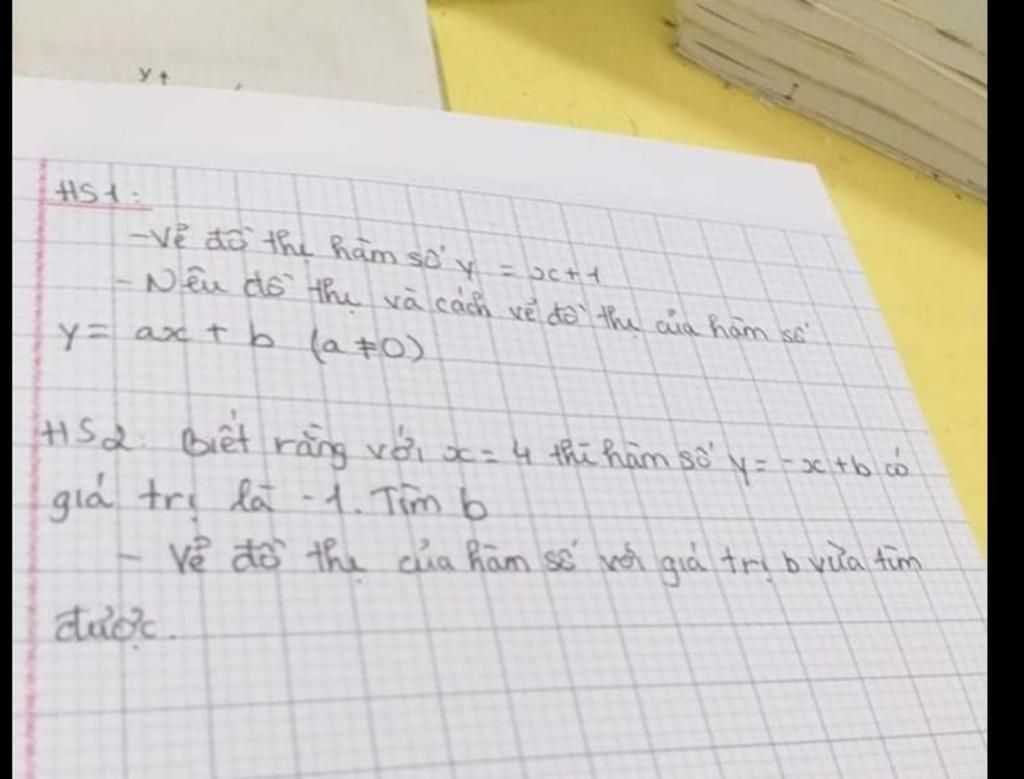 y
HS1:
- Vẽ đồ thị hàm số y = x+1
- Nêu đồ thị và cách vẽ đồ thị của hàm số
y = ax + b (a ≠ 0)
HS2: Biết rằng với x = 4 thì hàm số y = -x + b có
giá trị là -1. Tìm b
- Vẽ đồ thị của hàm số với giá trị b vừa tìm
được.